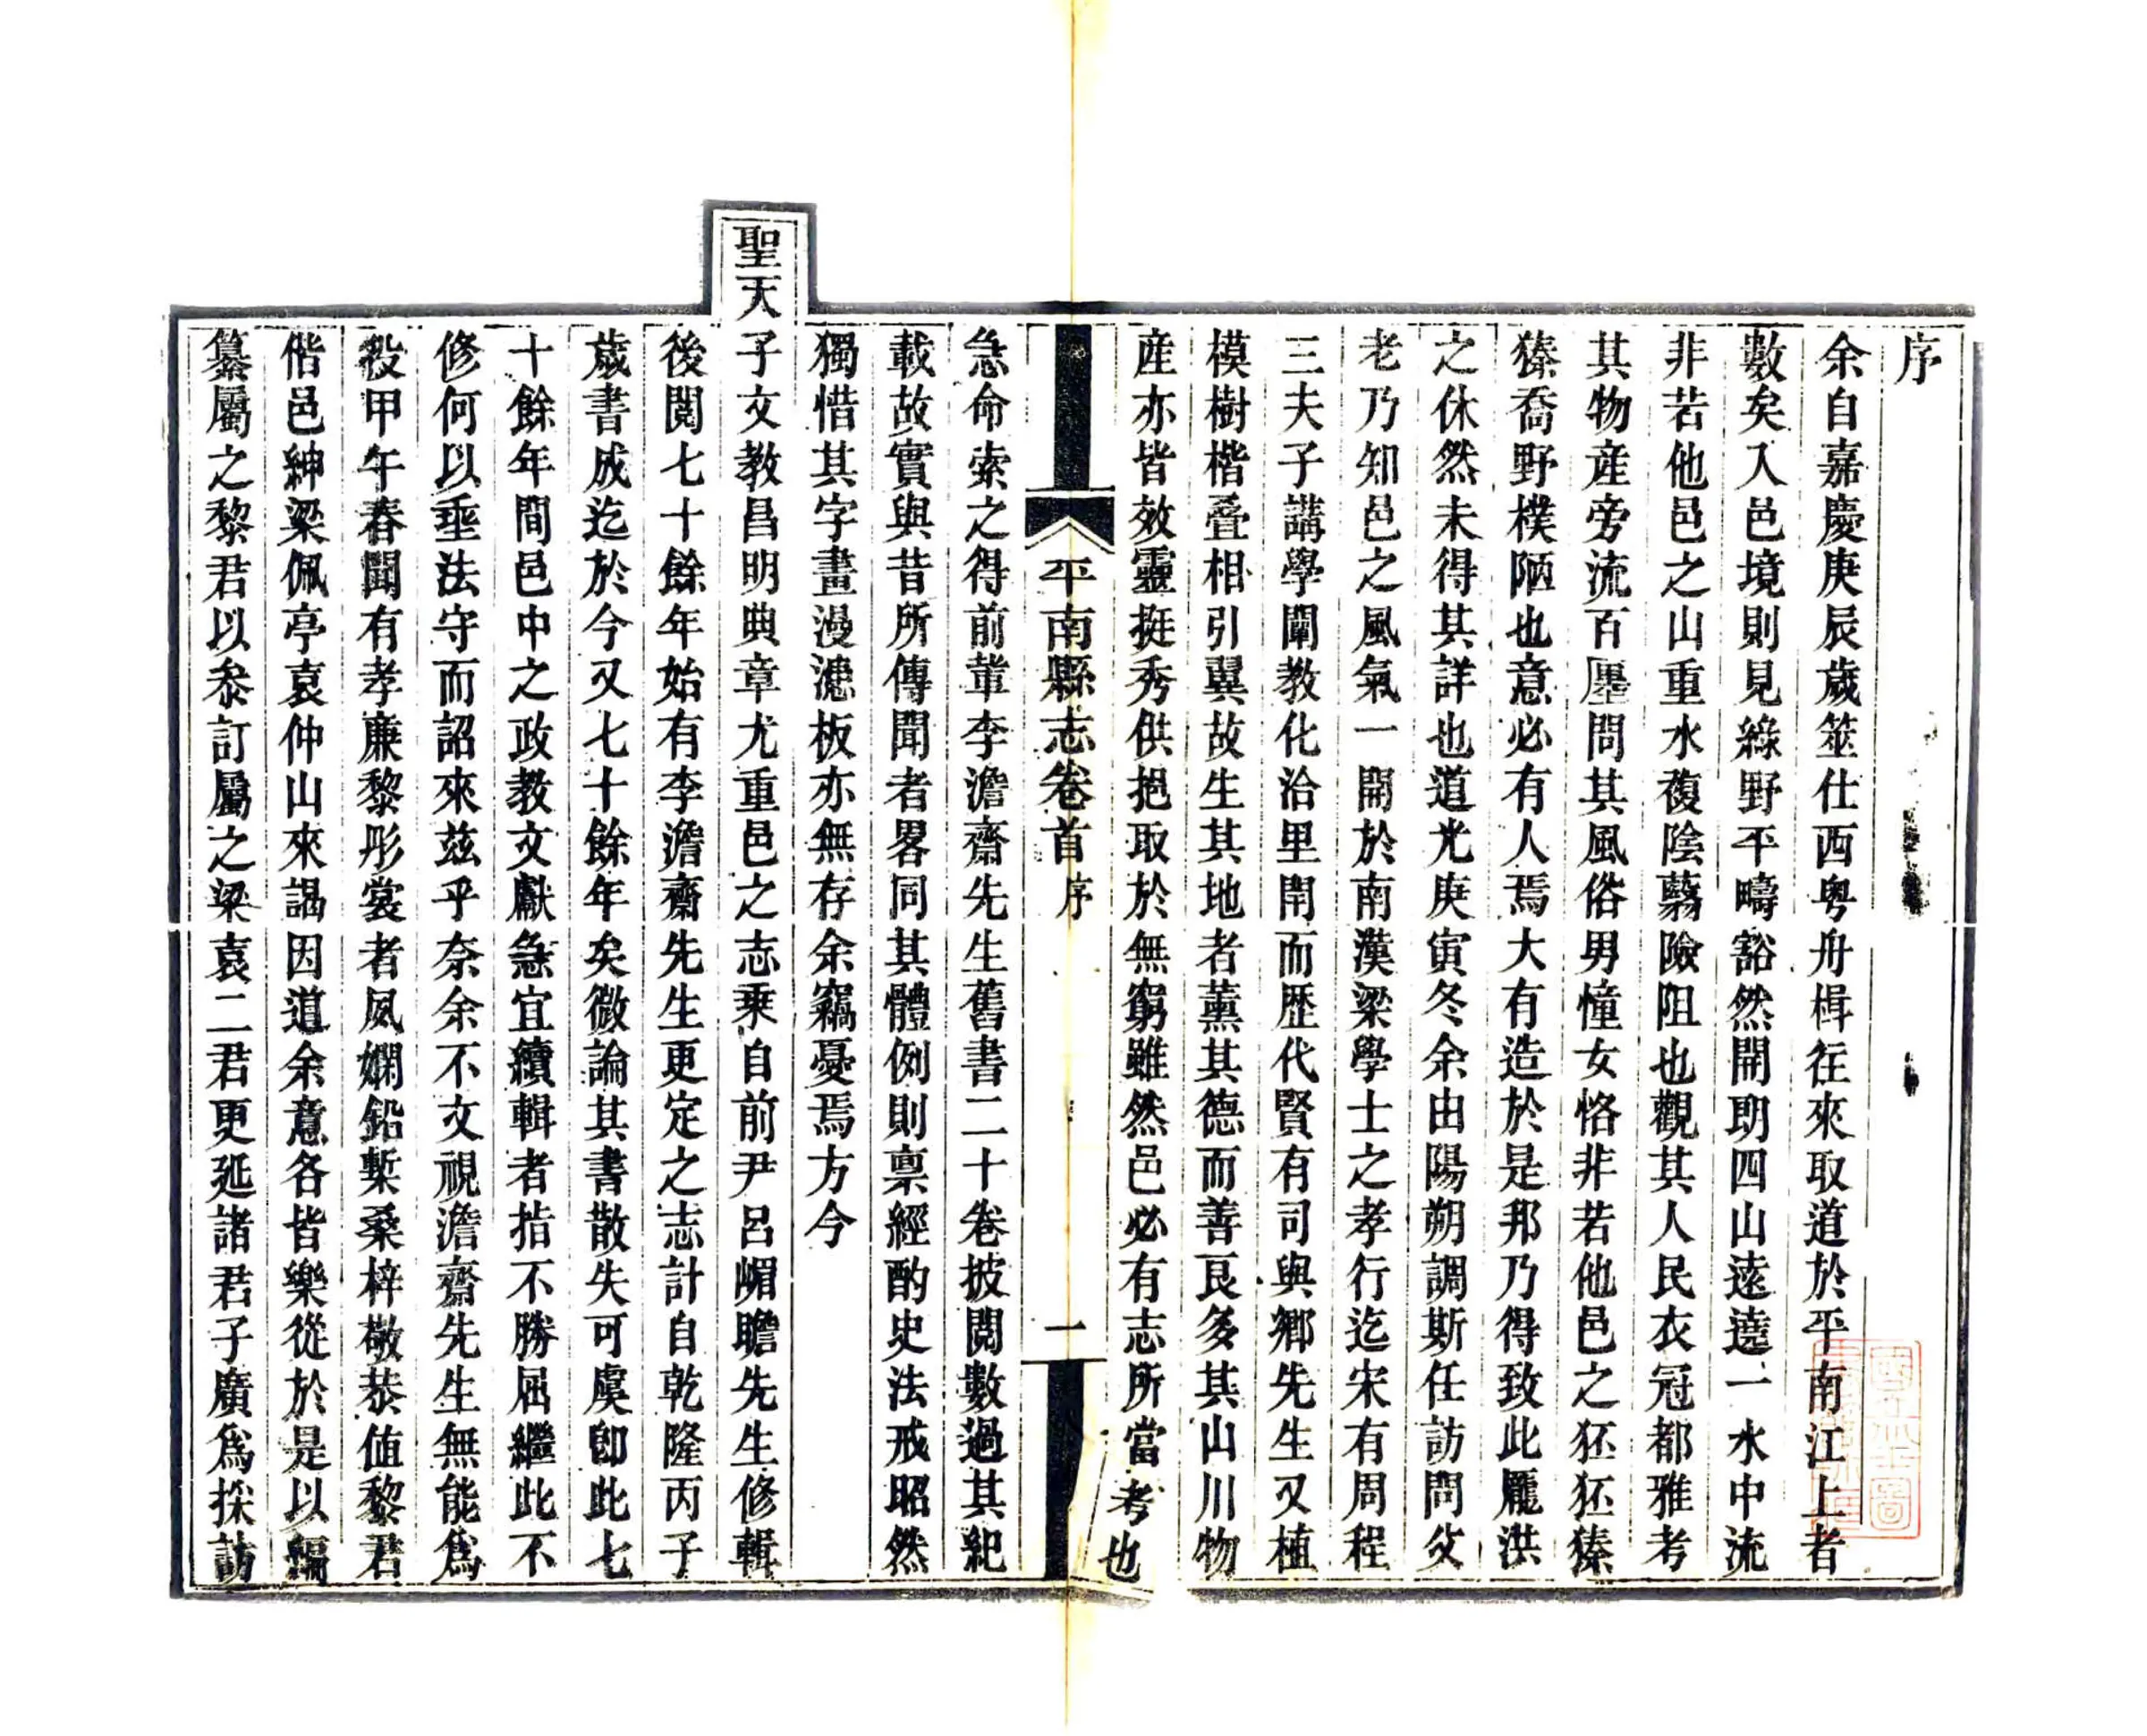 序
余自嘉慶庚辰歲筮仕西粤舟楫往來取道於平南江上者
數矣入邑境則見綠野平疇豁然開朗四山遠遶一水中流
非若他邑之山重水複陰翳險阻也觀其人民衣冠都雅考
其物產旁流百廛問其風俗男憧女恪非若他邑之狉狉獉
獉喬野樸陋也意必有人焉大有造於是邦乃得致此龎洪
之休然未得其詳也道光庚寅冬余由陽朔調斯任訪問父
老乃知邑之風氣一開於南漢梁學士之孝行迄宋有周程
三夫子講學闡教化洽里閈而歷代賢有司與鄉先生又植
模樹楷叠相引翼故生其地者薰其德而善良多其山川物
產亦皆效靈挺秀供挹取於無窮雖然邑必有志所當考也
平南縣志卷首 序 一
急命索之得前輩李澹齋先生舊書二十卷披閱數過其紀
載故實與昔所傳聞者畧同其體例則禀經酌史法戒昭然
獨惜其字畫漫漶板亦無存余竊憂焉方今
聖天子文教昌明典章尤重邑之志乘自前尹呂嵋瞻先生修輯
後閱七十餘年始有李澹齋先生更定之志計自乾隆丙子
歲書成迄於今又七十餘年矣微論其書散失可虞卽此七
十餘年間邑中之政教文獻急宜續輯者指不勝屈繼此不
修何以垂法守而詔來茲乎奈余不文視澹齋先生無能爲
役甲午春聞有孝廉黎彤裳者夙嫻鉛槧桑梓敬恭值黎君
偕邑紳梁佩亭袁仲山來謁因道余意各皆樂從於是以編
纂屬之黎君以叅訂屬之梁袁二君更延諸君子廣爲採訪